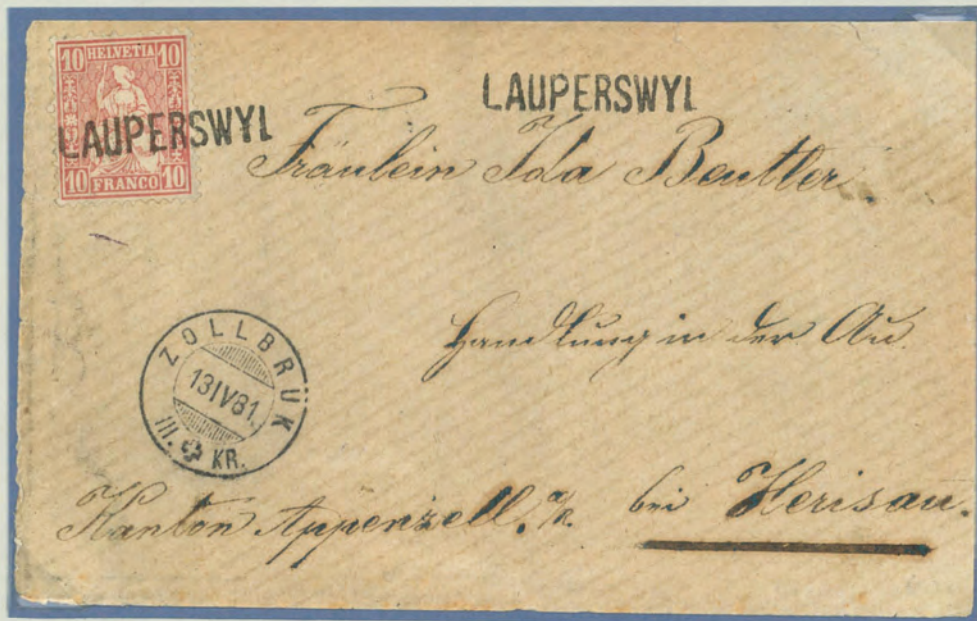 10 HELVETIA 10
10 FRANCO 10
LAUPERSWYL
LAUPERSWYL
Fräulein Ida Beutler
Handlung in der Au.
ZOLLBRÜK
13 IV 81.
III. KR.
Kanton Appenzell. a/R. bei Herisau.